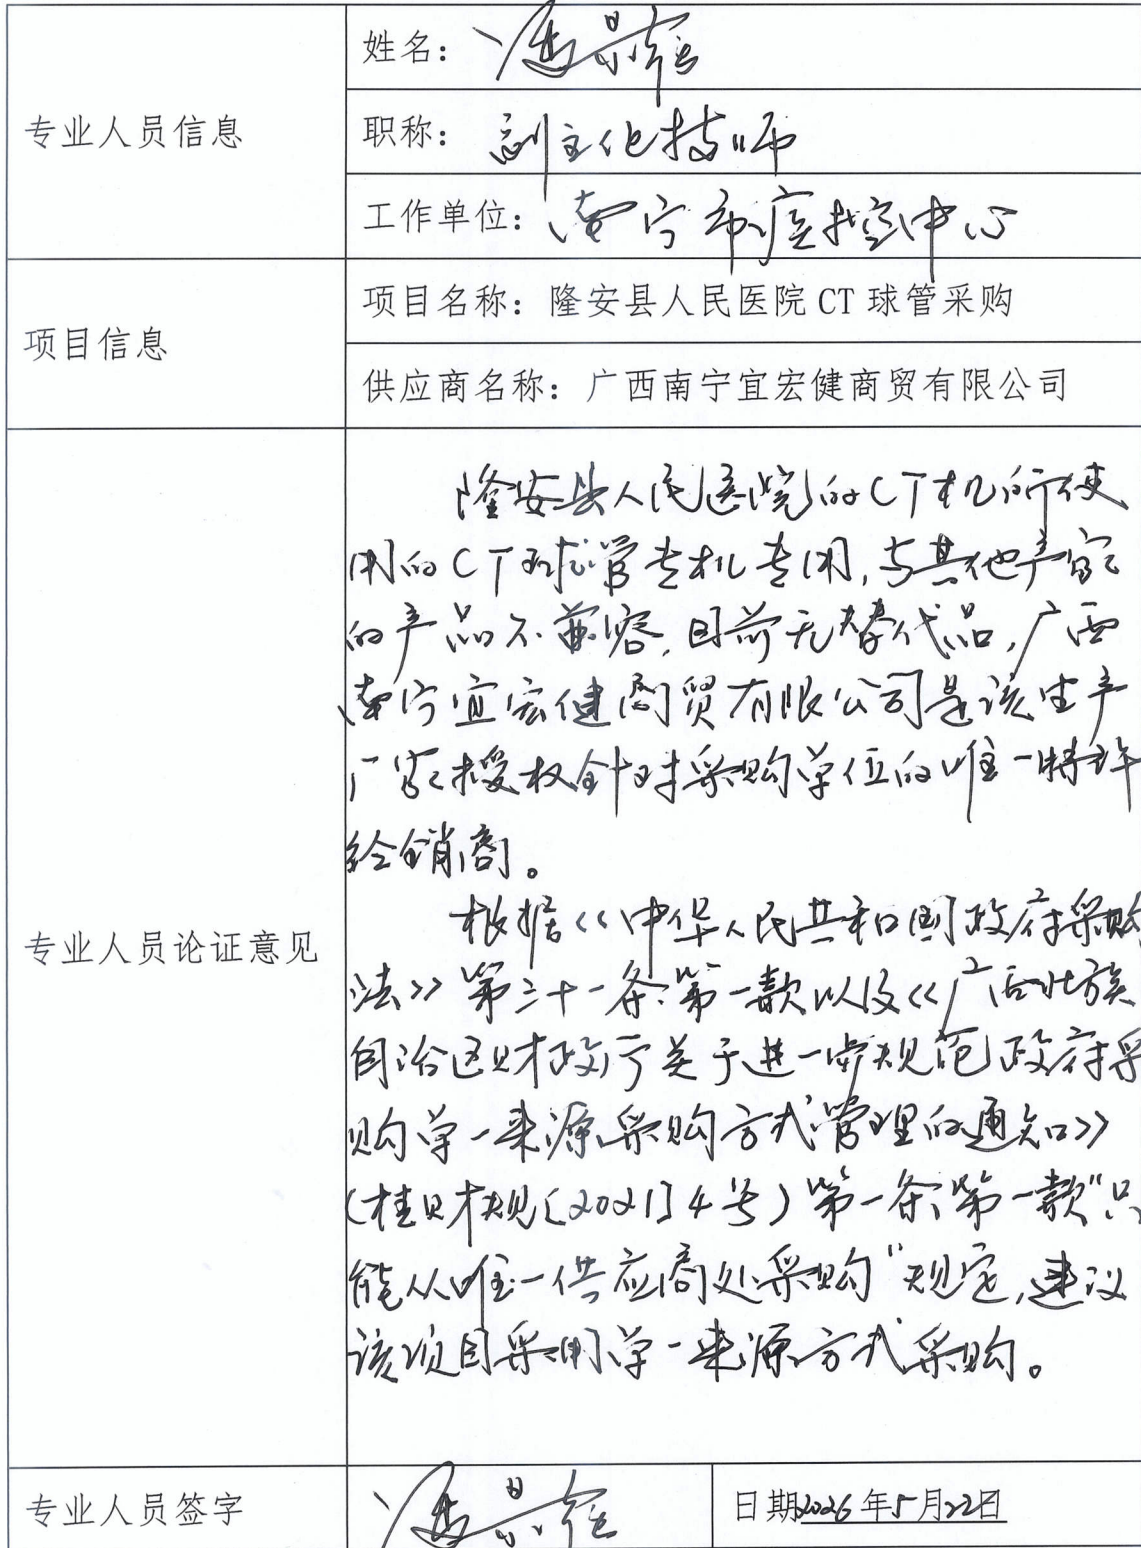 专业人员信息
姓名：冯景
职称：副主任技师
工作单位：南宁市疾控中心
项目信息
项目名称：隆安县人民医院 CT 球管采购
供应商名称：广西南宁宜宏健商贸有限公司
专业人员论证意见
隆安县人民医院的CT机所使
用的CT球管专机专用，与其他产家
的产品不兼容，目前无替代品，广西
南宁宜宏健商贸有限公司是该生产
厂家授权针对采购单位的唯一特许
经销商。
根据《中华人民共和国政府采购
法》第三十一条第一款以及《广西壮族
自治区财政厅关于进一步规范政府采
购单一来源采购方式管理的通知》
（桂财规〔2021〕4号）第一条第一款“只
能从唯一供应商处采购”规定，建议
该项目采用单一来源方式采购。
专业人员签字
冯景
日期2026年5月22日